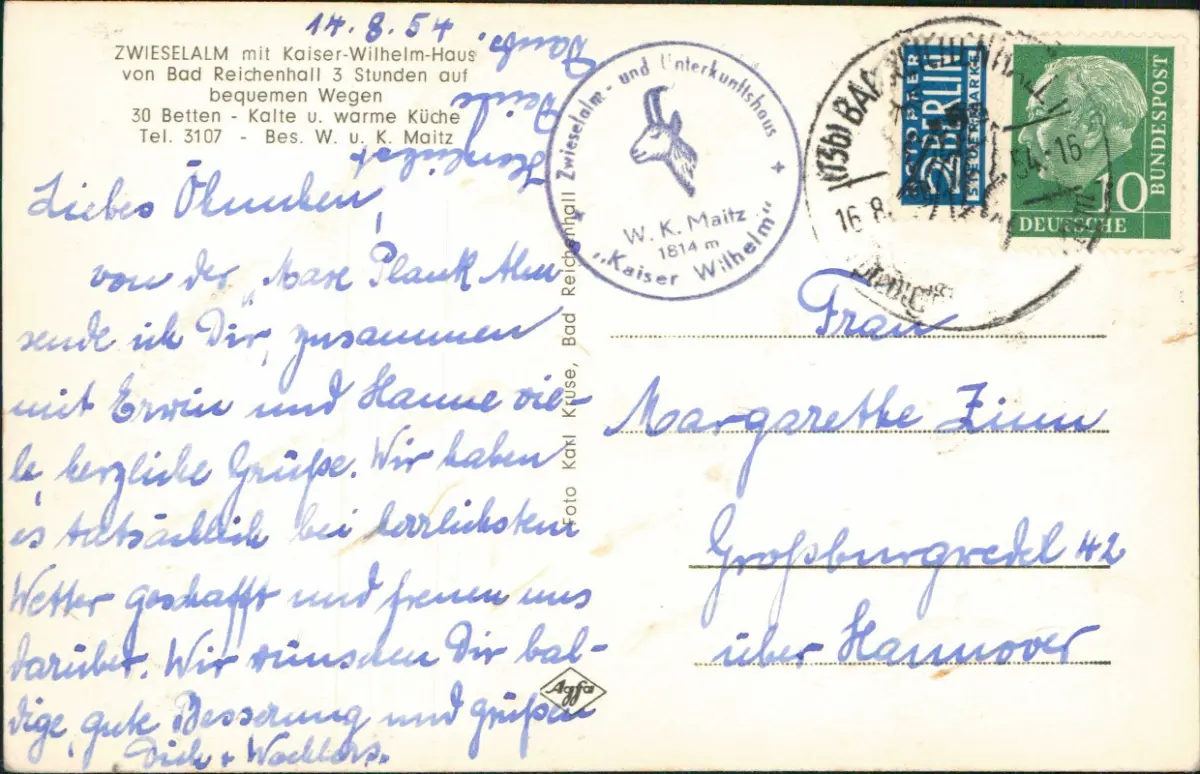 14.8.54
ZWIESELALM mit Kaiser-Wilhelm-Haus
von Bad Reichenhall 3 Stunden auf
bequemen Wegen
30 Betten - Kalte u. warme Küche
Tel. 3107 - Bes. W. u. K. Maitz
Liebes Ömchen,
von der "Max Plank Alm
sende ich Dir, zusammen
mit Erwin und Hanne vie-
le, herzliche Grüße. Wir haben
es tatsächlich bei herrlichstem
Wetter geschafft und freuen uns
darüber. Wir wünschen Dir bal-
dige, gute Besserung und grüßen
Dich +
Foto Karl Kruse, Bad Reichenhall
Agfa
Zwieselalm- und Unterkunftshaus
W. K. Maitz
1814 m
"Kaiser Wilhelm"
(13b) BAD REICHENHALL
16.8.54-16
NOTOPFER
2 BERLIN
STEUERMARKE
DEUTSCHE
BUNDESPOST
10
Frau
Margarethe Zinn
Großburgwedel 42
über Hannover